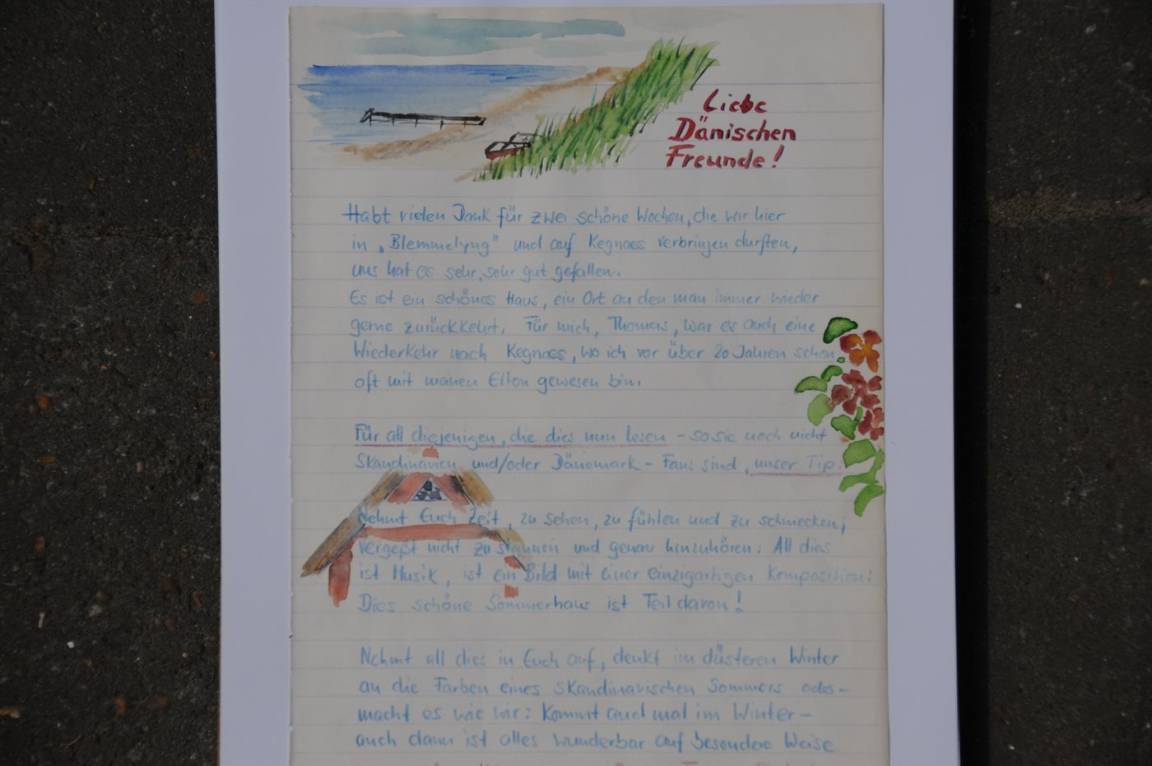 Liebe
Dänischen
Freunde!
Habt vielen Dank für zwei schöne Wochen, die wir hier
in „Blemmelyng" und auf Kegnaes verbringen durften,
uns hat es sehr, sehr gut gefallen.
Es ist ein schönes Haus, ein Ort an den man immer wieder
gerne zurückkehrt. Für mich, Thomas, war es auch eine
Wiederkehr nach Kegnaes, wo ich vor über 20 Jahren schon
oft mit meinen Eltern gewesen bin.
Für all diejenigen, die dies nun lesen - so sie noch nicht
Skandinavien und/oder Dänemark - Fans sind, unser Tip:
Nehmt Euch Zeit, zu sehen, zu fühlen und zu schmecken,
vergeßt nicht zu staunen und genau hinzuhören: All dies
ist Musik, ist ein Bild mit einer einzigartigen Komposition:
Dies schöne Sommerhaus ist Teil davon!
Nehmt all dies in Euch auf, denkt im düsteren Winter
an die Farben eines Skandinavischen Sommers oder -
macht es wie wir: Kommt auch mal im Winter -
auch dann ist alles wunderbar auf besondere Weise